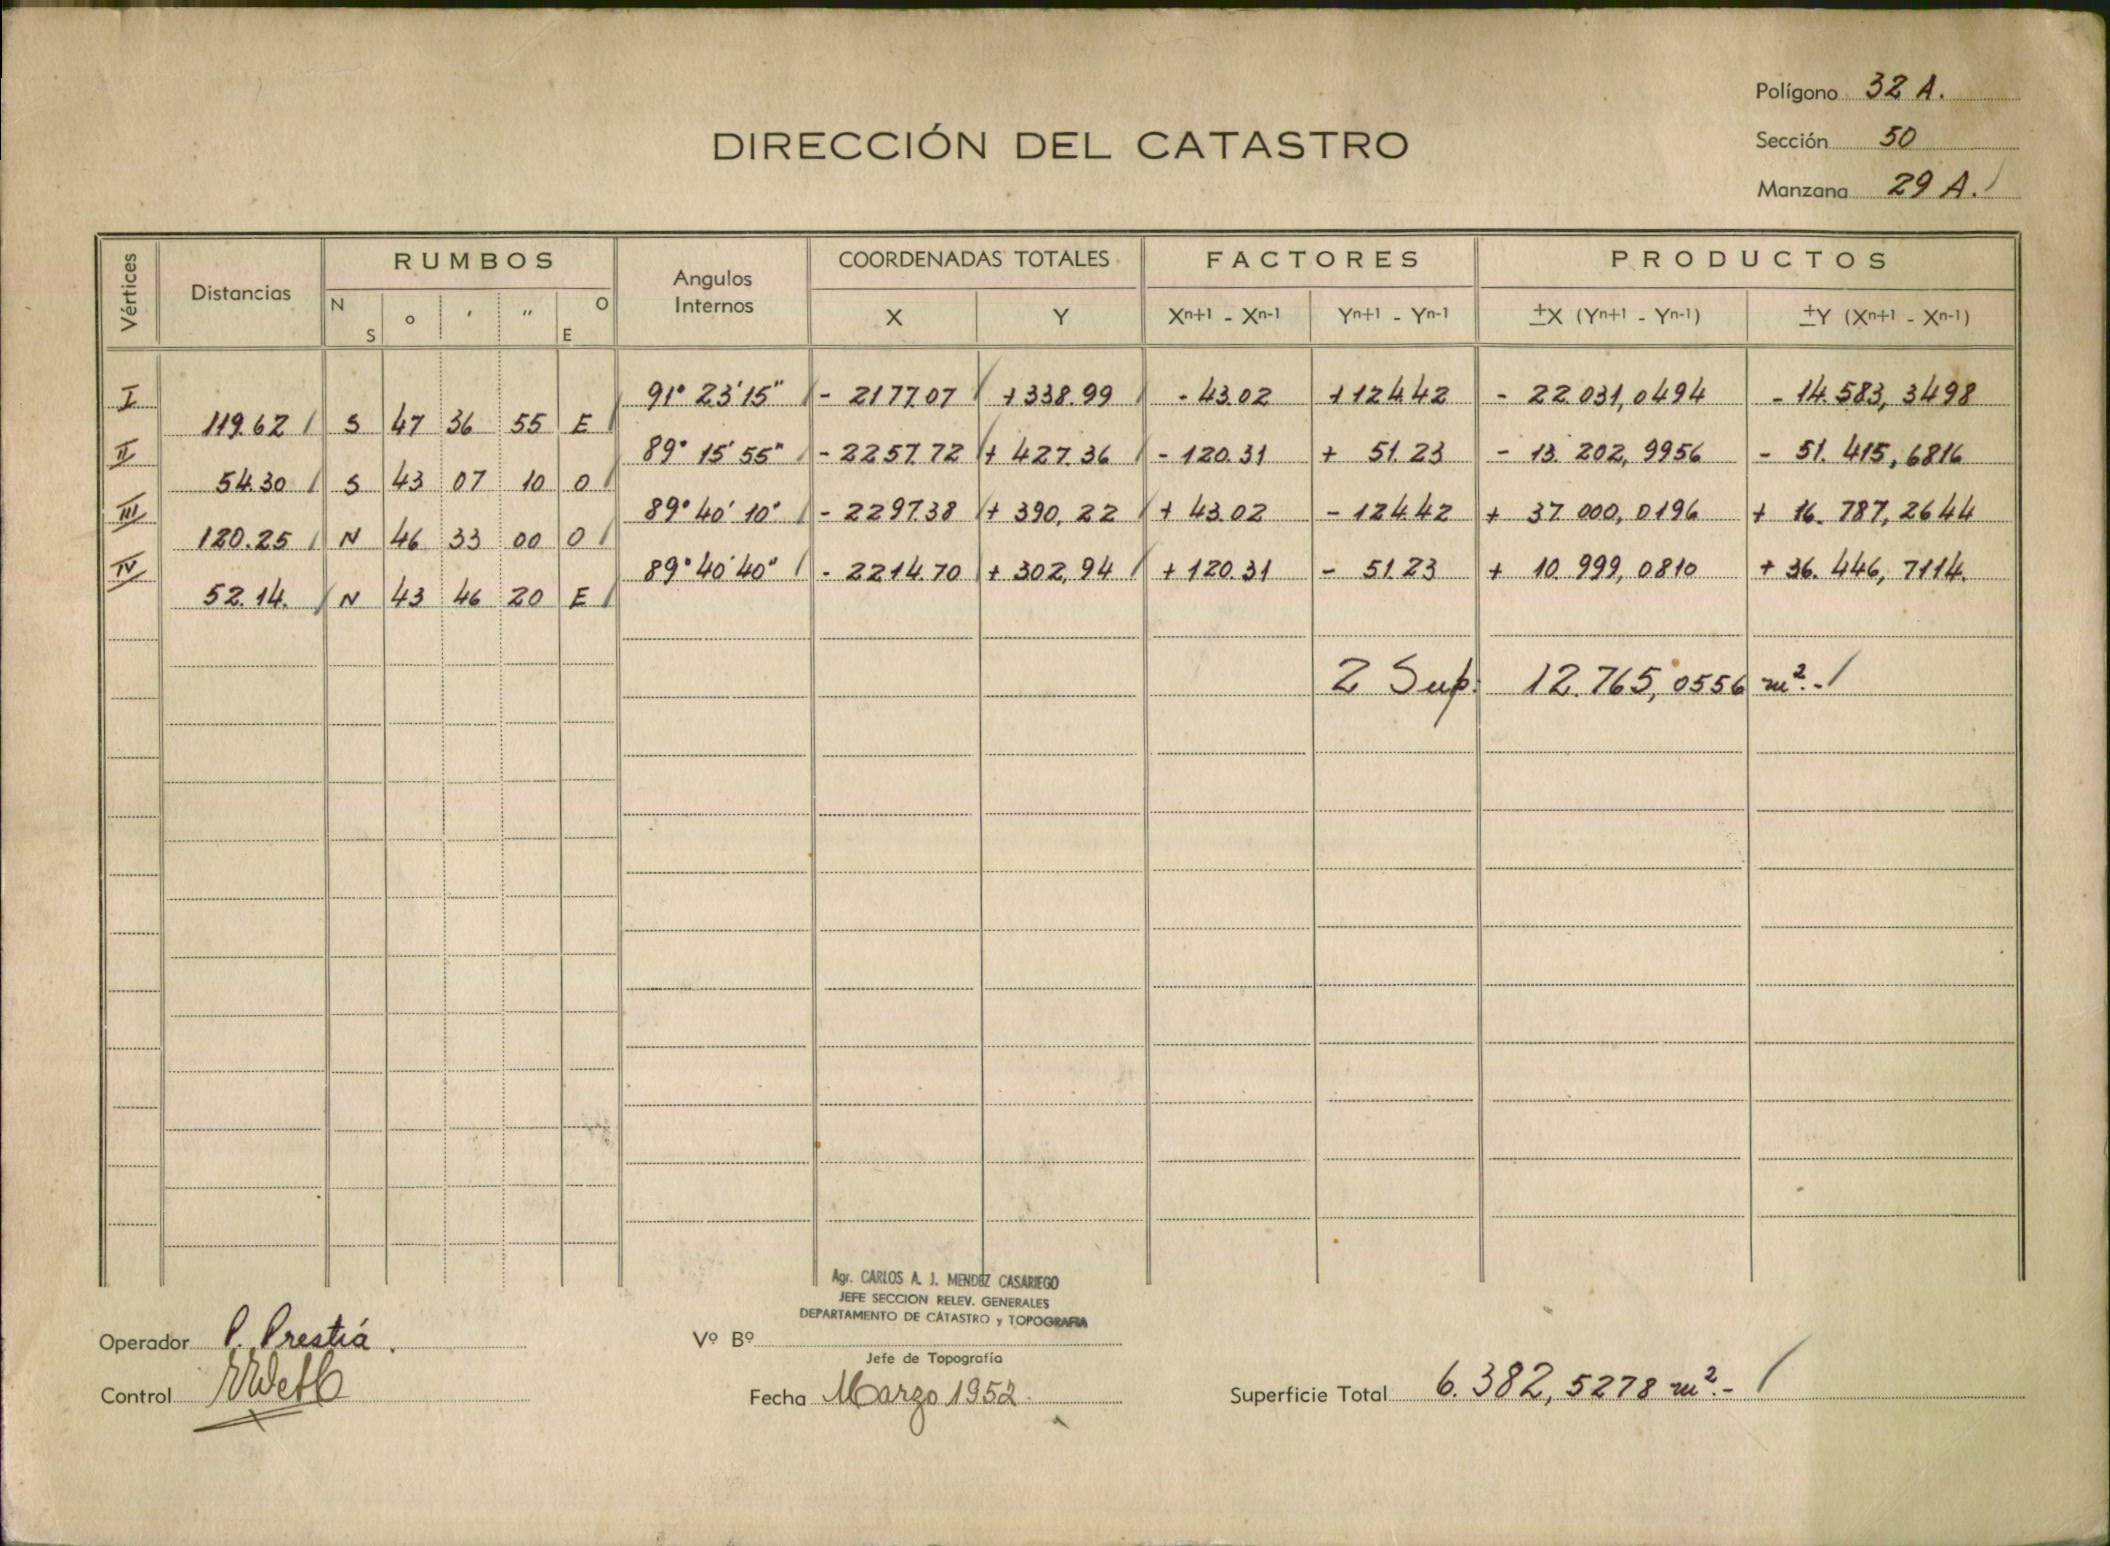 Polígono 32 A.
DIRECCIÓN DEL CATASTRO
Sección 50
Manzana 29 A.
Vértices Distancias RUMBOS Angulos Internos COORDENADAS TOTALES FACTORES PRODUCTOS
N S o ' " O E X Y Xn+1 - Xn-1 Yn+1 - Yn-1 ±X (Yn+1 - Yn-1) ±Y (Xn+1 - Xn-1)
I 91° 23' 15" - 2177.07 + 338.99 - 43.02 + 124.42 - 22 031,0494 - 14.583,3498
119.62 S 47 36 55 E
II 89° 15' 55" - 2257.72 + 427.36 - 120.31 + 51.23 - 13.202,9956 - 51.415,6816
54.30 S 43 07 10 O
III 89° 40' 10" - 2297.38 + 390,22 + 43.02 - 124.42 + 37.000,0196 + 16.787,2644
120.25 N 46 33 00 O
IV 89° 40' 40" - 2214.70 + 302,94 + 120.31 - 51.23 + 10.999,0810 + 36.446,7114.
52.14. N 43 46 20 E
2 Sup. 12.765,0556 m².-
Agr. CARLOS A. J. MENDEZ CASARIEGO
JEFE SECCION RELEV. GENERALES
DEPARTAMENTO DE CATASTRO y TOPOGRAFIA
Operador P. Prestiá.
Vº Bº
Jefe de Topografía
Control
Fecha Marzo 1952.
Superficie Total 6.382,5278 m².-